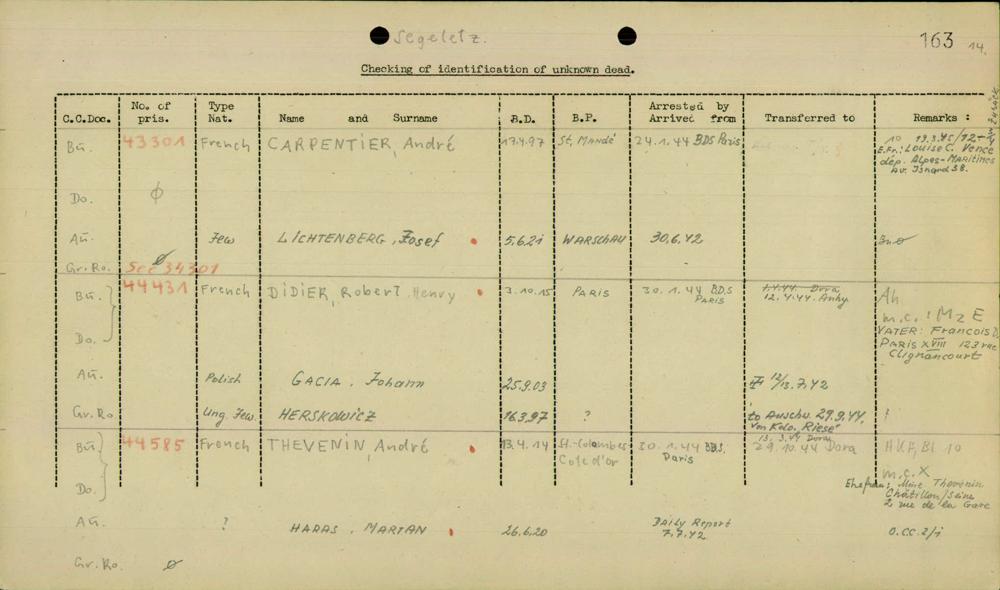 Segeletz.
163 14.
Checking of identification of unknown dead.
C.C.Doc. No. of pris. Type Nat. Name and Surname B.D. B.P. Arrested by Arrived from Transferred to Remarks :
zurück
Bu. 43301 French CARPENTIER, André 17.4.97 St, Mandé 24.1.44 BDS Paris
E.Fr.: Louise C. Vence
dép. Alpes-Maritimes
Av. Isnard 38.
Do. ϕ
Au. Jew LICHTENBERG, Josef 5.6.21 WARSCHAU 30.6.42
Gr.Ro. ϕ See 34301
Bu. 44431 French DIDIER, Robert Henry 3.10.15 PARIS 30.1.44 BDS Paris
Dora
12.4.44
Ah
m.c.: M z E
VATER: Francois D.
PARIS XVIII 123 rue
Clignancourt
Do.
Au. Polish GACIA, Johann 25.9.03 12/13.7.42
Gr.Ro. Ung. Jew. HERSKOWICZ 16.3.97 ? to Auschw. 29.9.44.
von Kdo. "Riese"
Bu. 44585 French THEVENIN, André 13.4.14 St.-Colombes Cote d'or 30.1.44 BDS. Paris
13. 3.44 Dora
29.10.44 Dora
HKF, Bl 10
m.c. X
Ehefrau: Mme Thevenin
Châtillon/Seine
2 rue de la Gare
Do.
Au. ? HARAS, MARIAN 26.6.20 Daily Report
7.7.42
O.C.C. 2/i
Gr.Ro. ϕ